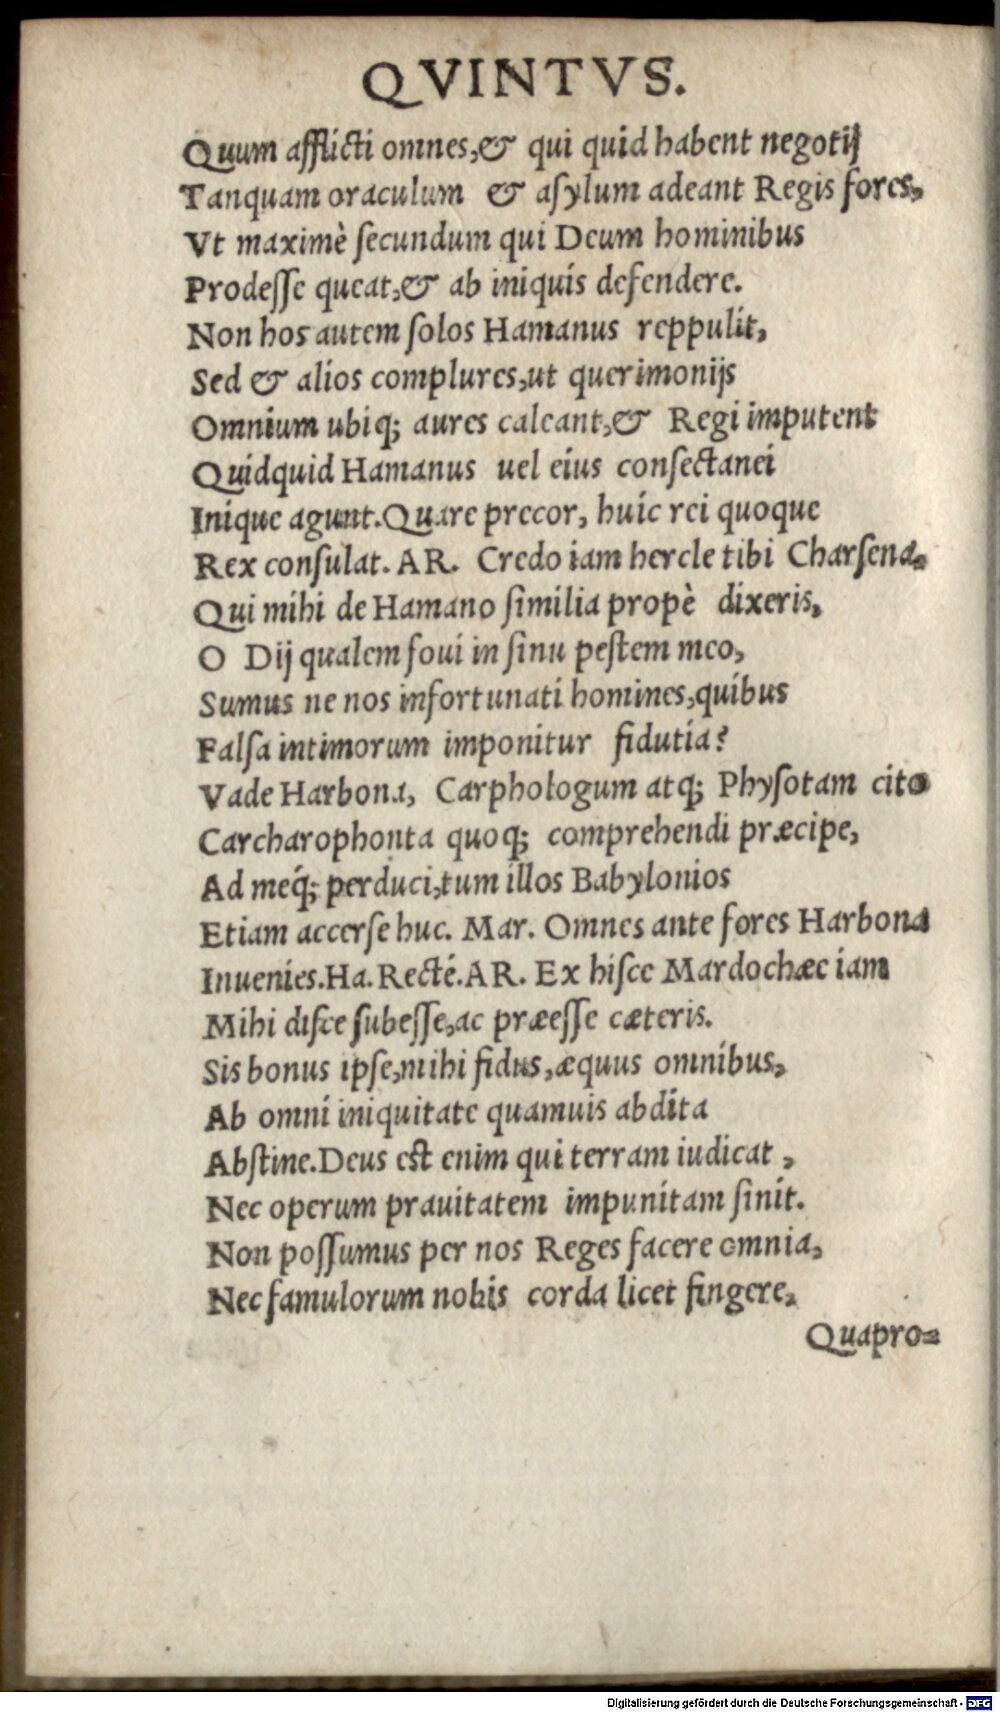 QVINTVS.
Quum afflicti omnes,& qui quid habent negotij
Tanquam oraculum & aſylum adeant Regis fores,
Vt maximè ſecundum qui Deum hominibus
Prodeſſe queat,& ab iniquis defendere.
Non hos autem ſolos Hamanus reppulit,
Sed & alios complures,ut querimonijs
Omnium ubiq; aures caleant,& Regi imputent
Quidquid Hamanus uel eius conſectanei
Inique agunt.Quare precor, huic rei quoque
Rex conſulat. AR. Credo iam hercle tibi Charſena,
Qui mihi de Hamano ſimilia propè dixeris,
O Dij qualem foui in ſinu peſtem meo,
Sumus ne nos infortunati homines,quibus
Falſa intimorum imponitur fidutia?
Vade Harbona, Carphologum atq; Phyſotam cito
Carcharophonta quoq; comprehendi præcipe,
Ad meq́; perduci,tum illos Babylonios
Etiam accerſe huc. Mar. Omnes ante fores Harbona
Inuenies.Ha. Recté.AR. Ex hiſce Mardochæe iam
Mihi diſce ſubeſſe,ac præeſſe cæteris.
Sis bonus ipſe,mihi fidus,æquus omnibus,
Ab omni iniquitate quamuis abdita
Abſtine.Deus eſt enim qui terram iudicat ,
Nec operum prauitatem impunitam ſinit.
Non poſſumus per nos Reges facere omnia,
Nec famulorum nobis corda licet fingere,
Quapro⸗
Digitalisierung gefördert durch die Deutsche Forschungsgemeinschaft - DFG